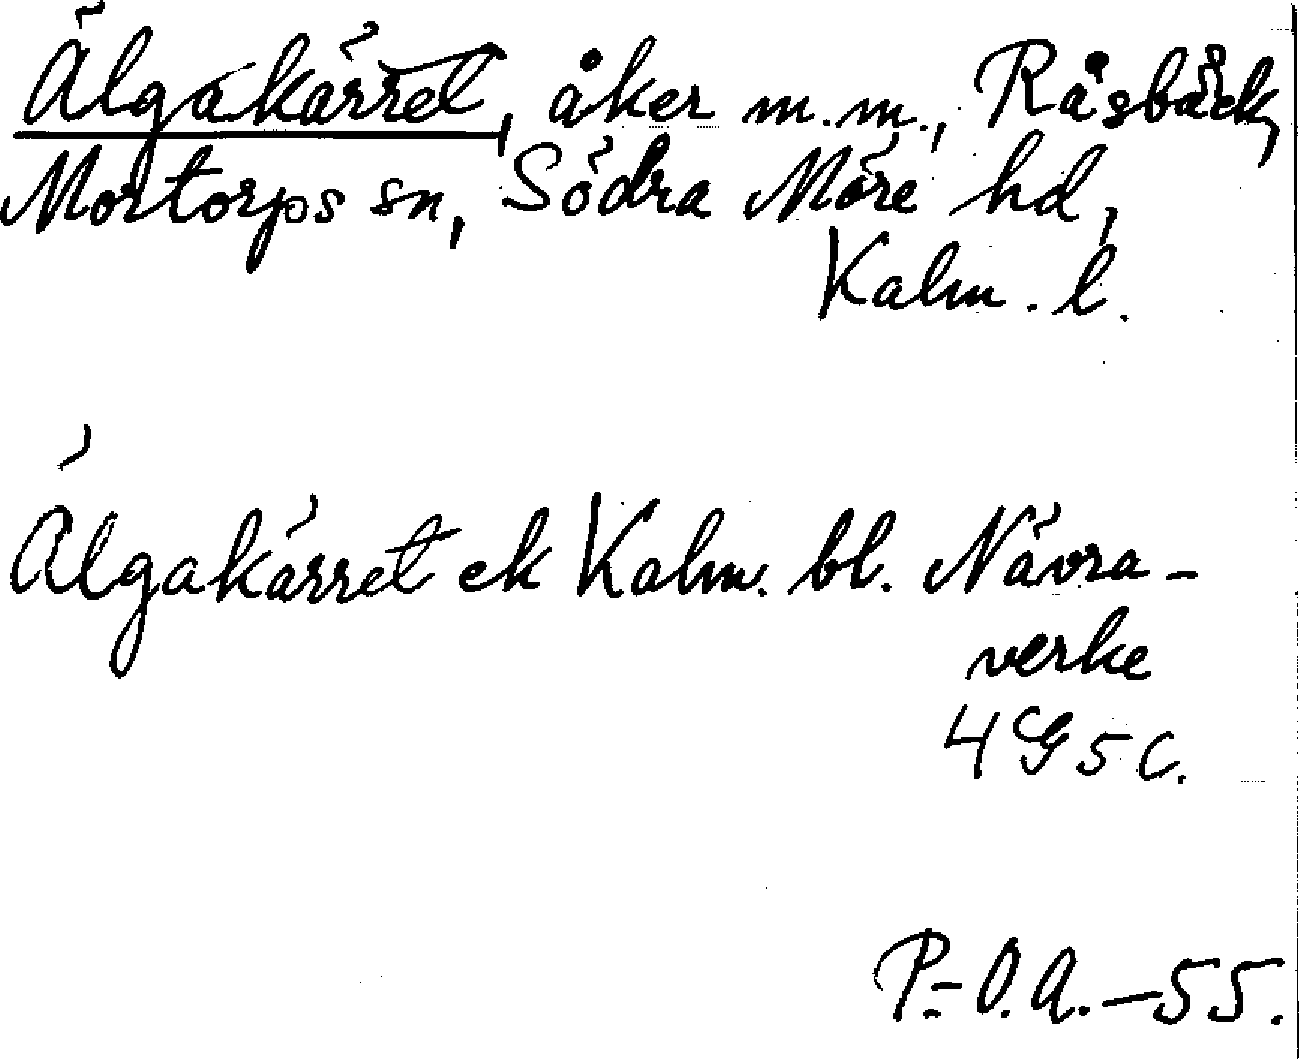 Älgakärret, åker m.m., Råsbäck,
Mortorps sn, Södra Möre hd,
Kalm. l.
Älgakärret ek Kalm. bl. Nävra-
verke
4G5c.
P.-O.A.-55.